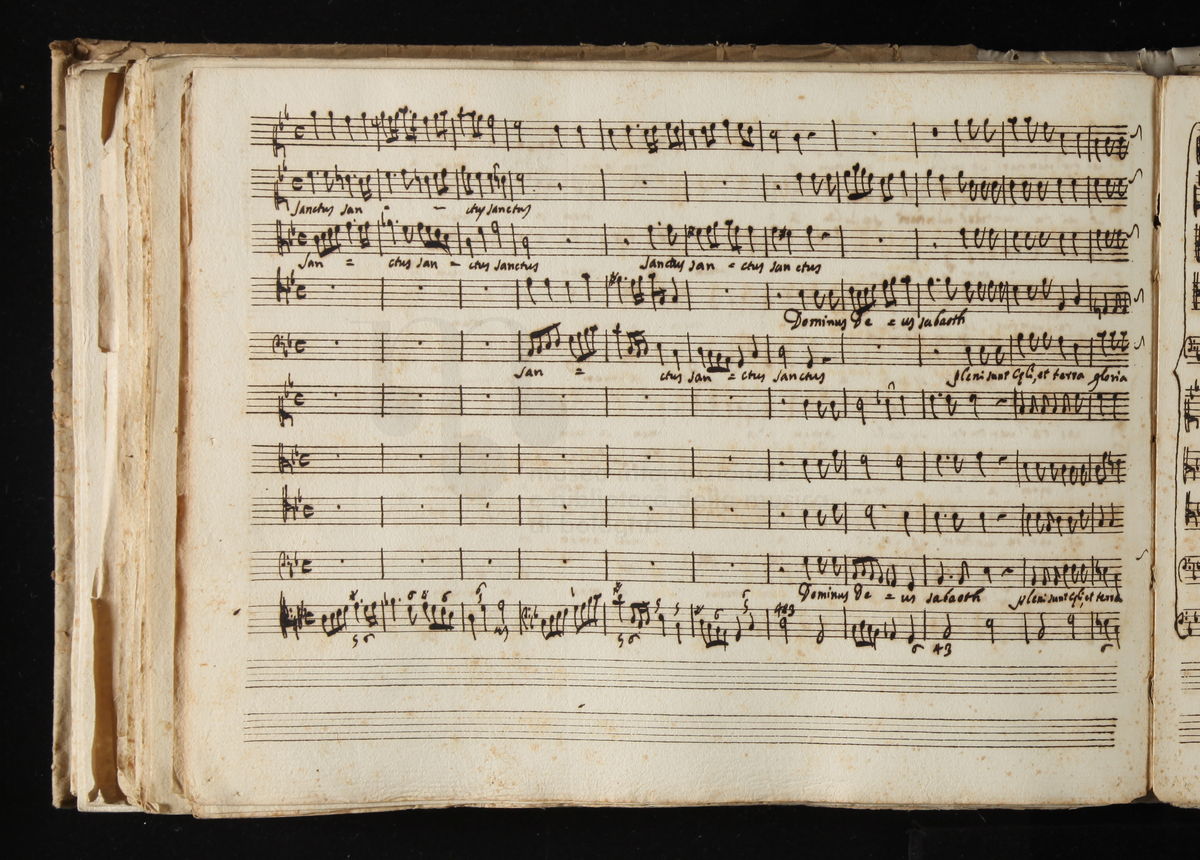 Sanctus san - - ctus sanctus
San = ctus san - ctus sanctus sanctus san = ctus sanctus
Dominus De = us sabaoth
san = ctus san = ctus sanctus pleni sunt Cęli, et terra gloria
Dominus De = us sabaoth pleni sunt Cęli, et terra
6 6 5
5 6 5 6 5 5 6 5 4 3
6 4 3 6